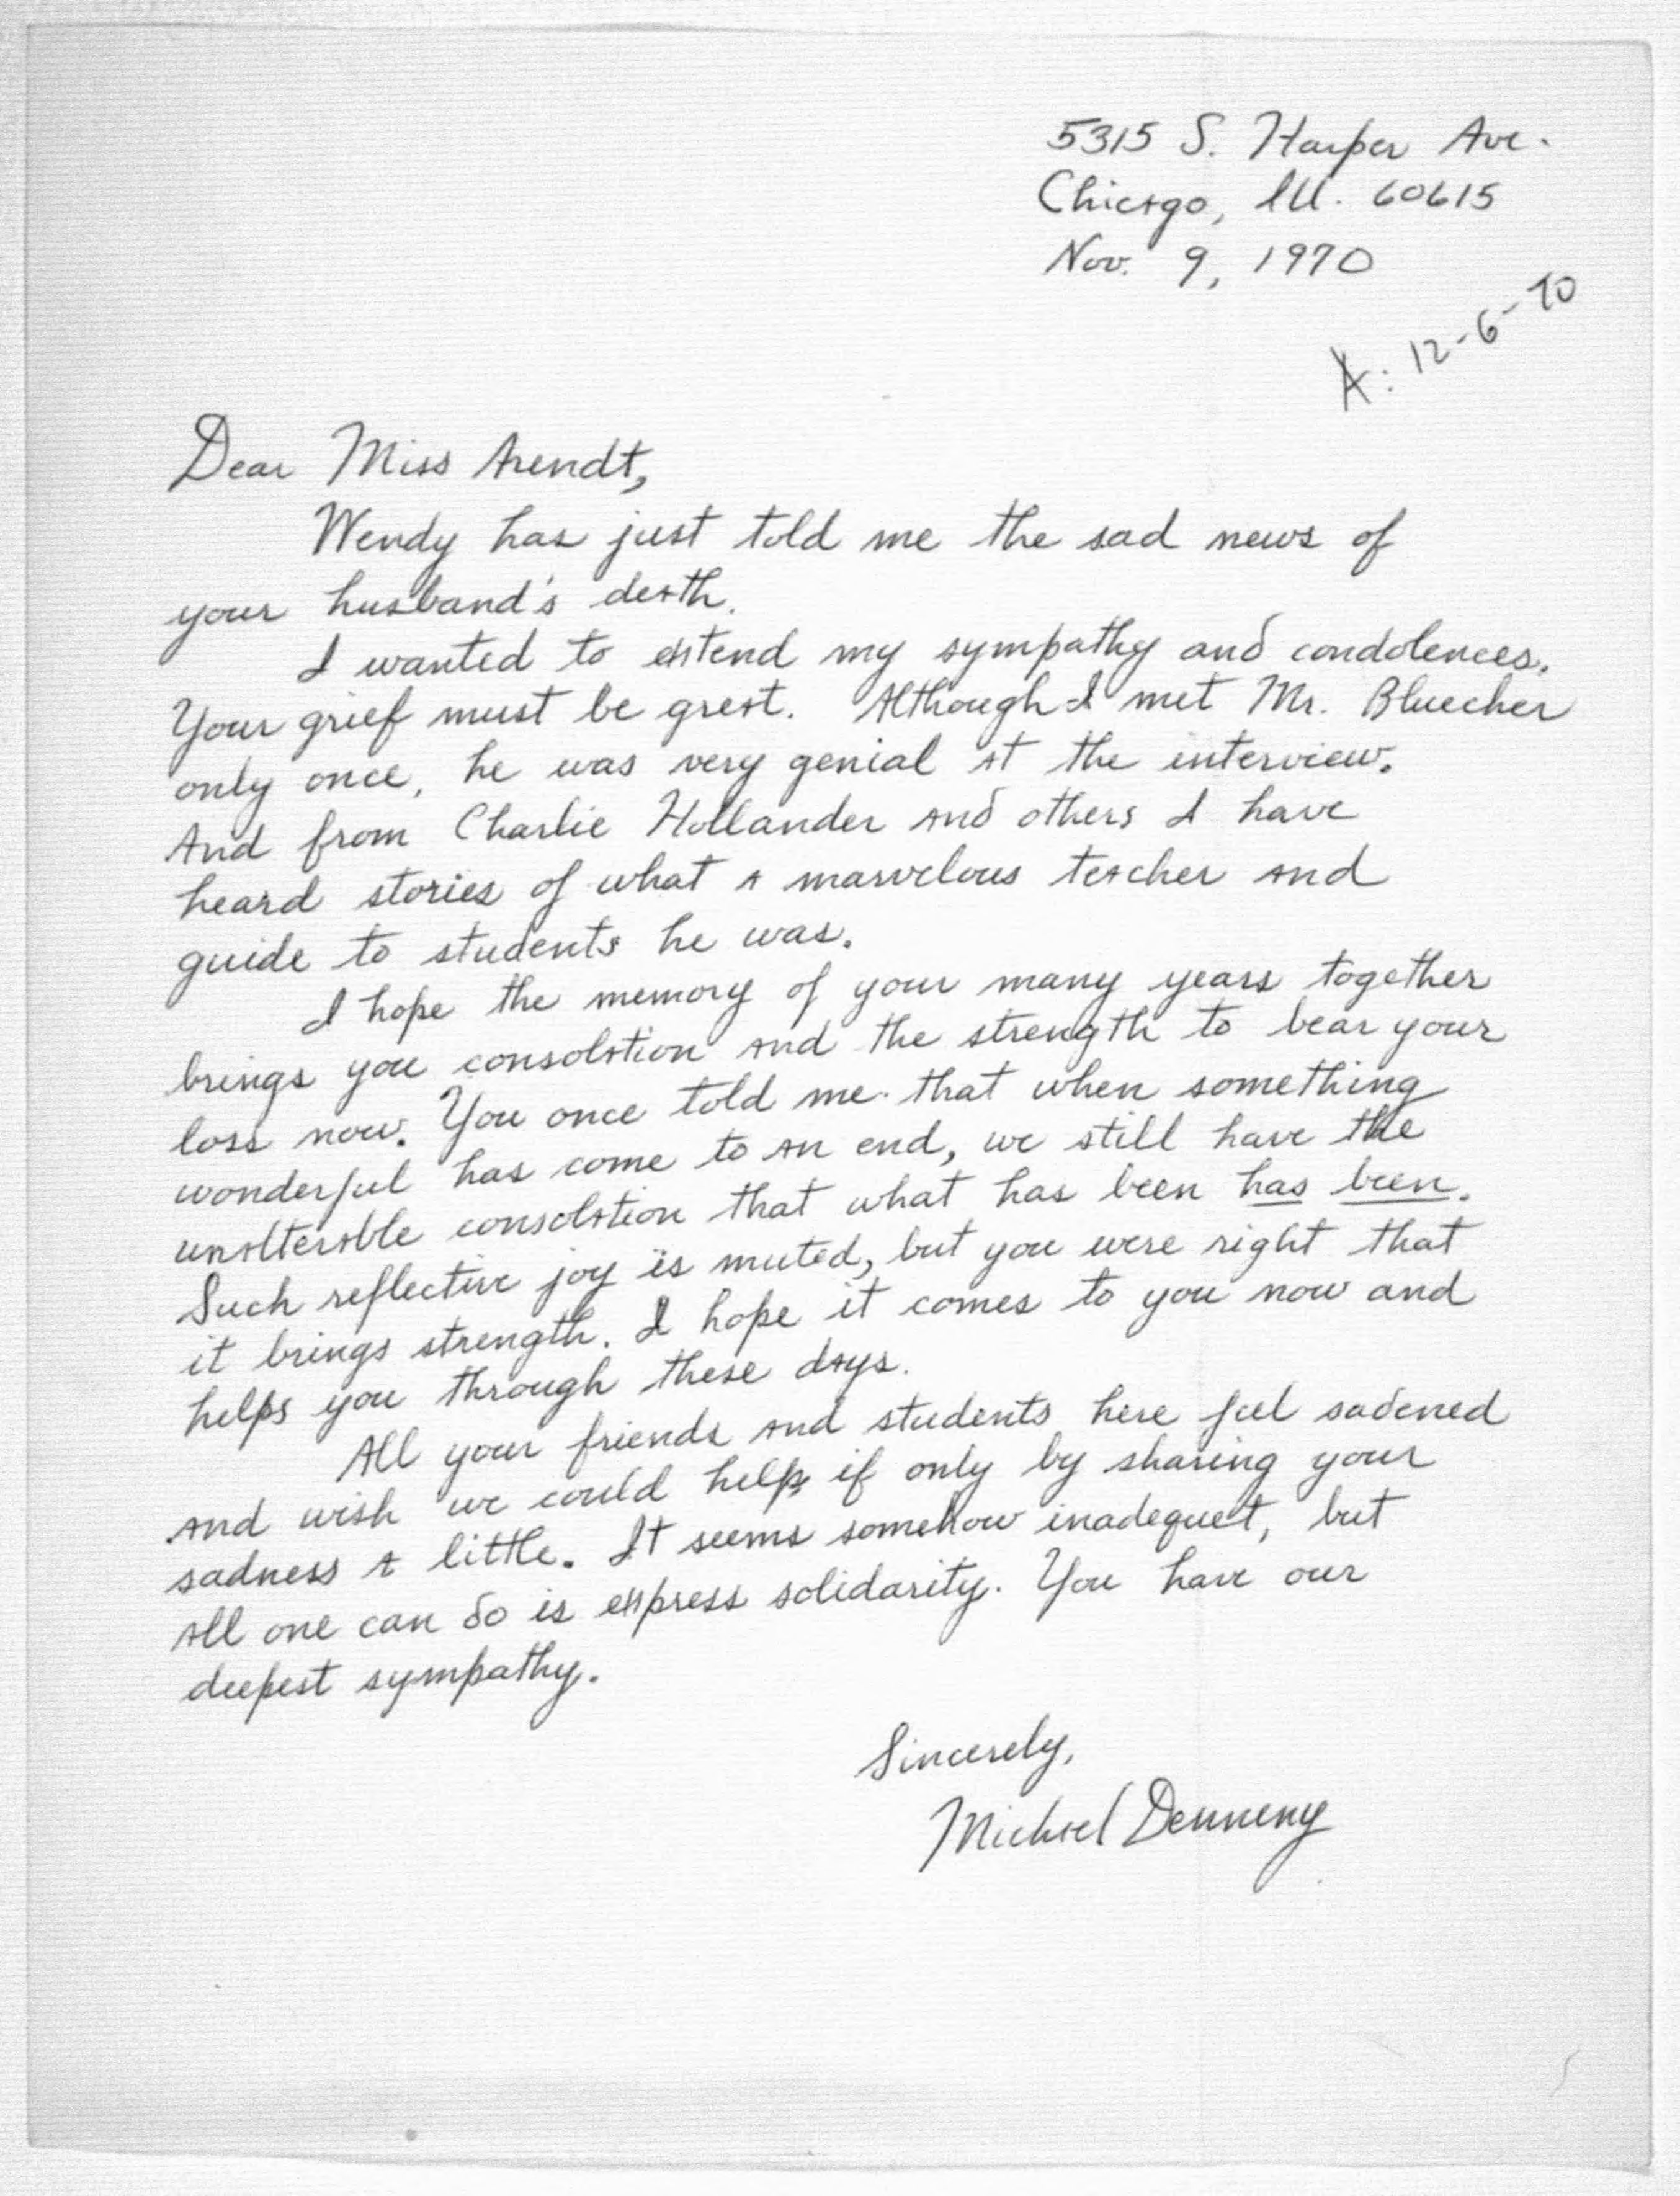 5315 S. Harper Ave.
Chicago, Ill. 60615
Nov. 9, 1970
A: 12-6-70
Dear Miss Arendt,
Wendy has just told me the sad news of
your husband's death.
I wanted to extend my sympathy and condolences.
Your grief must be great. Although I met Mr. Bluecher
only once, he was very genial at the interview.
And from Charlie Hollander and others I have
heard stories of what a marvelous teacher and
guide to students he was.
I hope the memory of your many years together
brings you consolation and the strength to bear your
loss now. You once told me that when something
wonderful has come to an end, we still have the
unalterable consolation that what has been has been.
Such reflective joy is muted, but you were right that
it brings strength. I hope it comes to you now and
helps you through these days.
All your friends and students here feel sadened
and wish we could help if only by sharing your
sadness a little. It seems somehow inadequet, but
all one can do is express solidarity. You have our
deepest sympathy.
Sincerely,
Michael Denneny